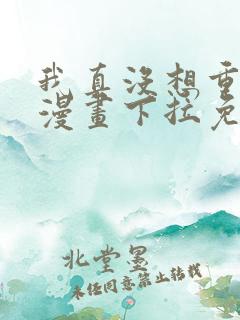 我真没想重
漫畫下拉免
北堂墨
未经同意禁止转载